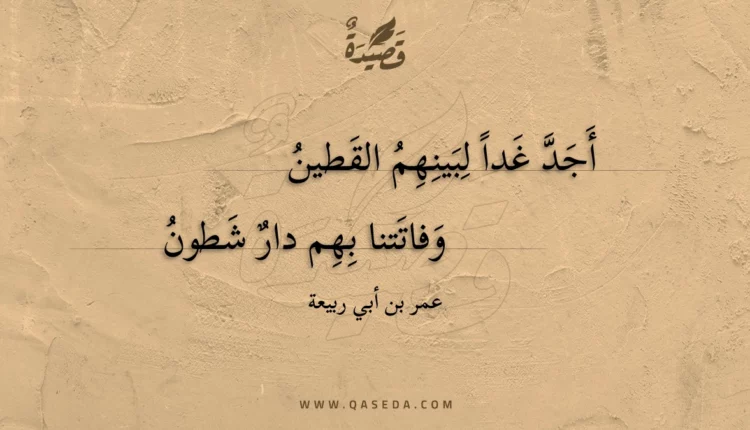 قَصِيْدَةٌ
أَجَدَّ غَداً لِبَينِهِمُ القَطينُ
وَفاتَتنا بِهِم دارٌ شَطونُ
عمر بن أبي ربيعة
WWW.QASEDA.COM